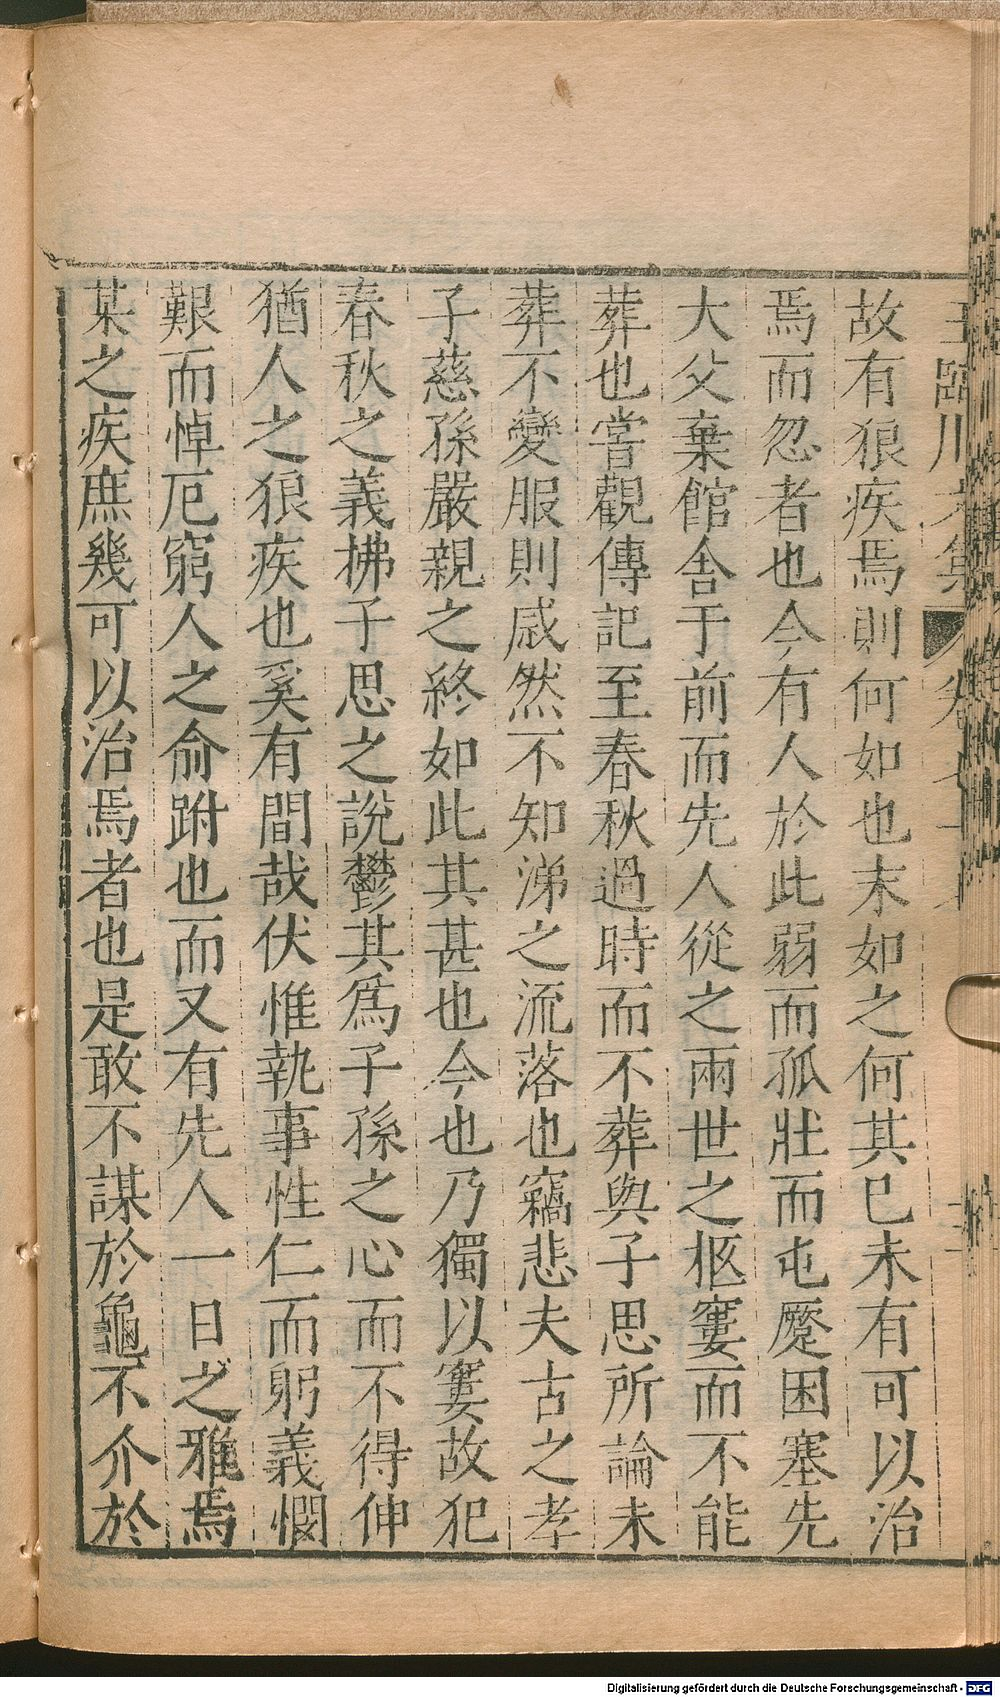 王臨川文集 卷七十 三
故有狼疾焉則何如也末如之何其已未有可以治
焉而忽者也今有人於此弱而孤壯而屯蹷困塞先
大父棄館舍于前而先人從之兩世之柩窶而不能
葬也嘗觀傳記至春秋過時而不葬與子思所論未
葬不變服則慼然不知涕之流落也竊悲夫古之孝
子慈孫嚴親之終如此其甚也今也乃獨以窶故犯
春秋之義拂子思之說鬱其爲子孫之心而不得伸
猶人之狼疾也奚有間哉伏惟執事性仁而躬義憫
艱而悼厄窮人之俞跗也而又有先人一日之雅焉
某之疾庶幾可以治焉者也是敢不謀於龜不介於
Digitalisierung gefördert durch die Deutsche Forschungsgemeinschaft - DFG